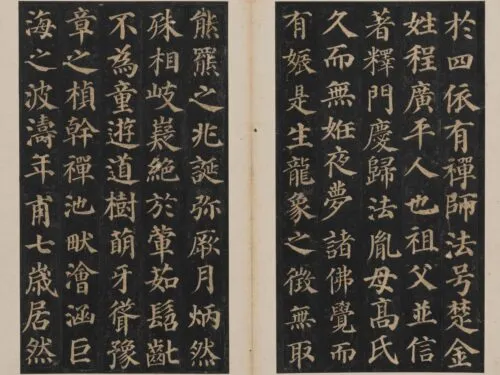 於四依有禪師法号楚金
姓程廣平人也祖父並信
著釋門慶歸法胤母髙氏
久而無姙夜夢諸佛覺而
有娠是生龍象之徵無取
熊羆之兆誕弥厥月炳然
殊相岐嶷絕於葷茹髫齓
不為童遊道樹萌牙聳豫
章之楨幹禪池畎澮涵巨
海之波濤年甫七歲居然